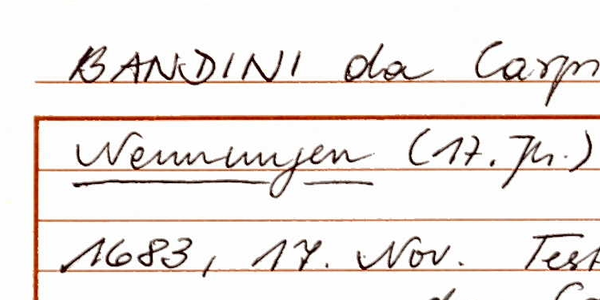 BANDINI da Carp
Nennungen (17. Jh.)
1683, 17. Nov. Test